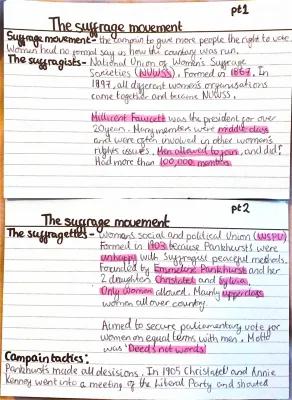 pt1
The suffrage movement
Suffrage movement- the campaign to give more people the right to vote.
Women had no formal say in how the country was run.
The suffragists- National Union of Women's Suffrage
Societies (NUWSS). Formed in 1867. In
1897, all different women's organisations
came together and became NUWSS.
Millicent Fawcett was the president for over
20 years. Many members were middle class
and were often involved in other women's
rights issues. Men allowed to join, and did!
Had more than 100,000 members.
pt2
The suffrage movement
The suffragettes- Women's social and political Union (WSPU)
Formed in 1903 because Pankhursts were
unhappy with Suffragist peaceful methods.
Founded by Emmeline Pankhurst and her
2 daughters Christabel and Sylvia.
Only women allowed. Mainly upperclass
women all over country.
Aimed to secure parliamentary vote for
women on equal terms with men. Motto
was 'Deeds not words'
Campain tactics:
Pankhursts made all decisions. In 1905 Christabel and Annie
Kenney went into a meeting of the Liberal Party and shouted